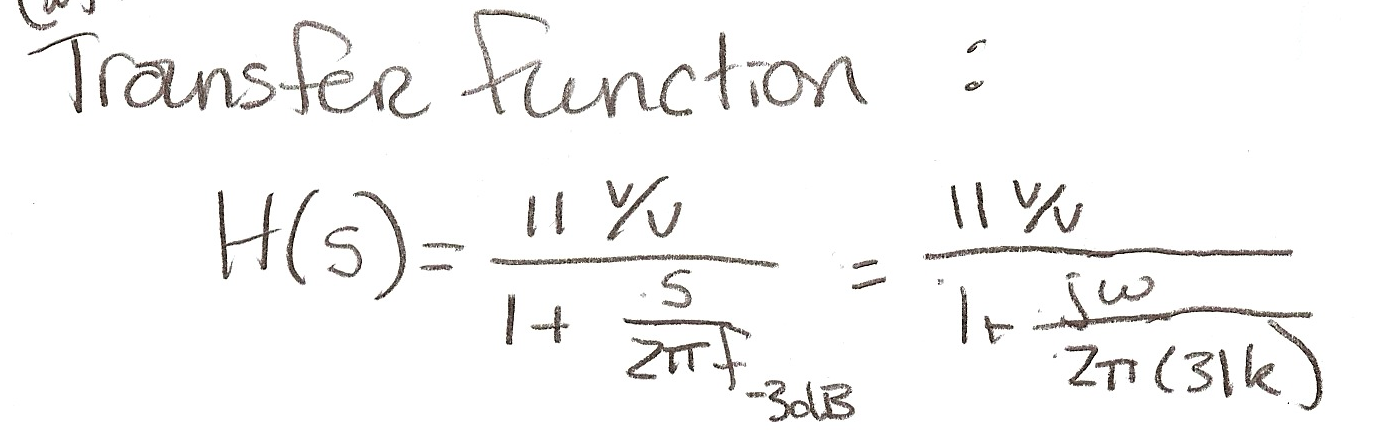 Transfer function :
H(s) = \frac{11 V/V}{1 + \frac{s}{2π f_{-3dB}}} = \frac{11 V/V}{1 + \frac{jω}{2π(31k)}}